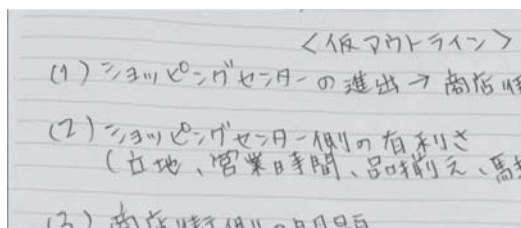 <仮アウトライン>
(1) ショッピングセンターの進出→商店
(2) ショッピングセンター側の有利さ
(立地、営業時間、品揃え、
(3) 商店街側の